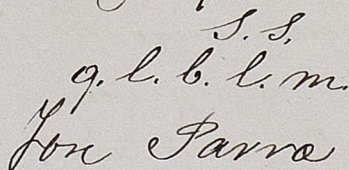 S. S.
q. l. b. l. m.
Jose Parra